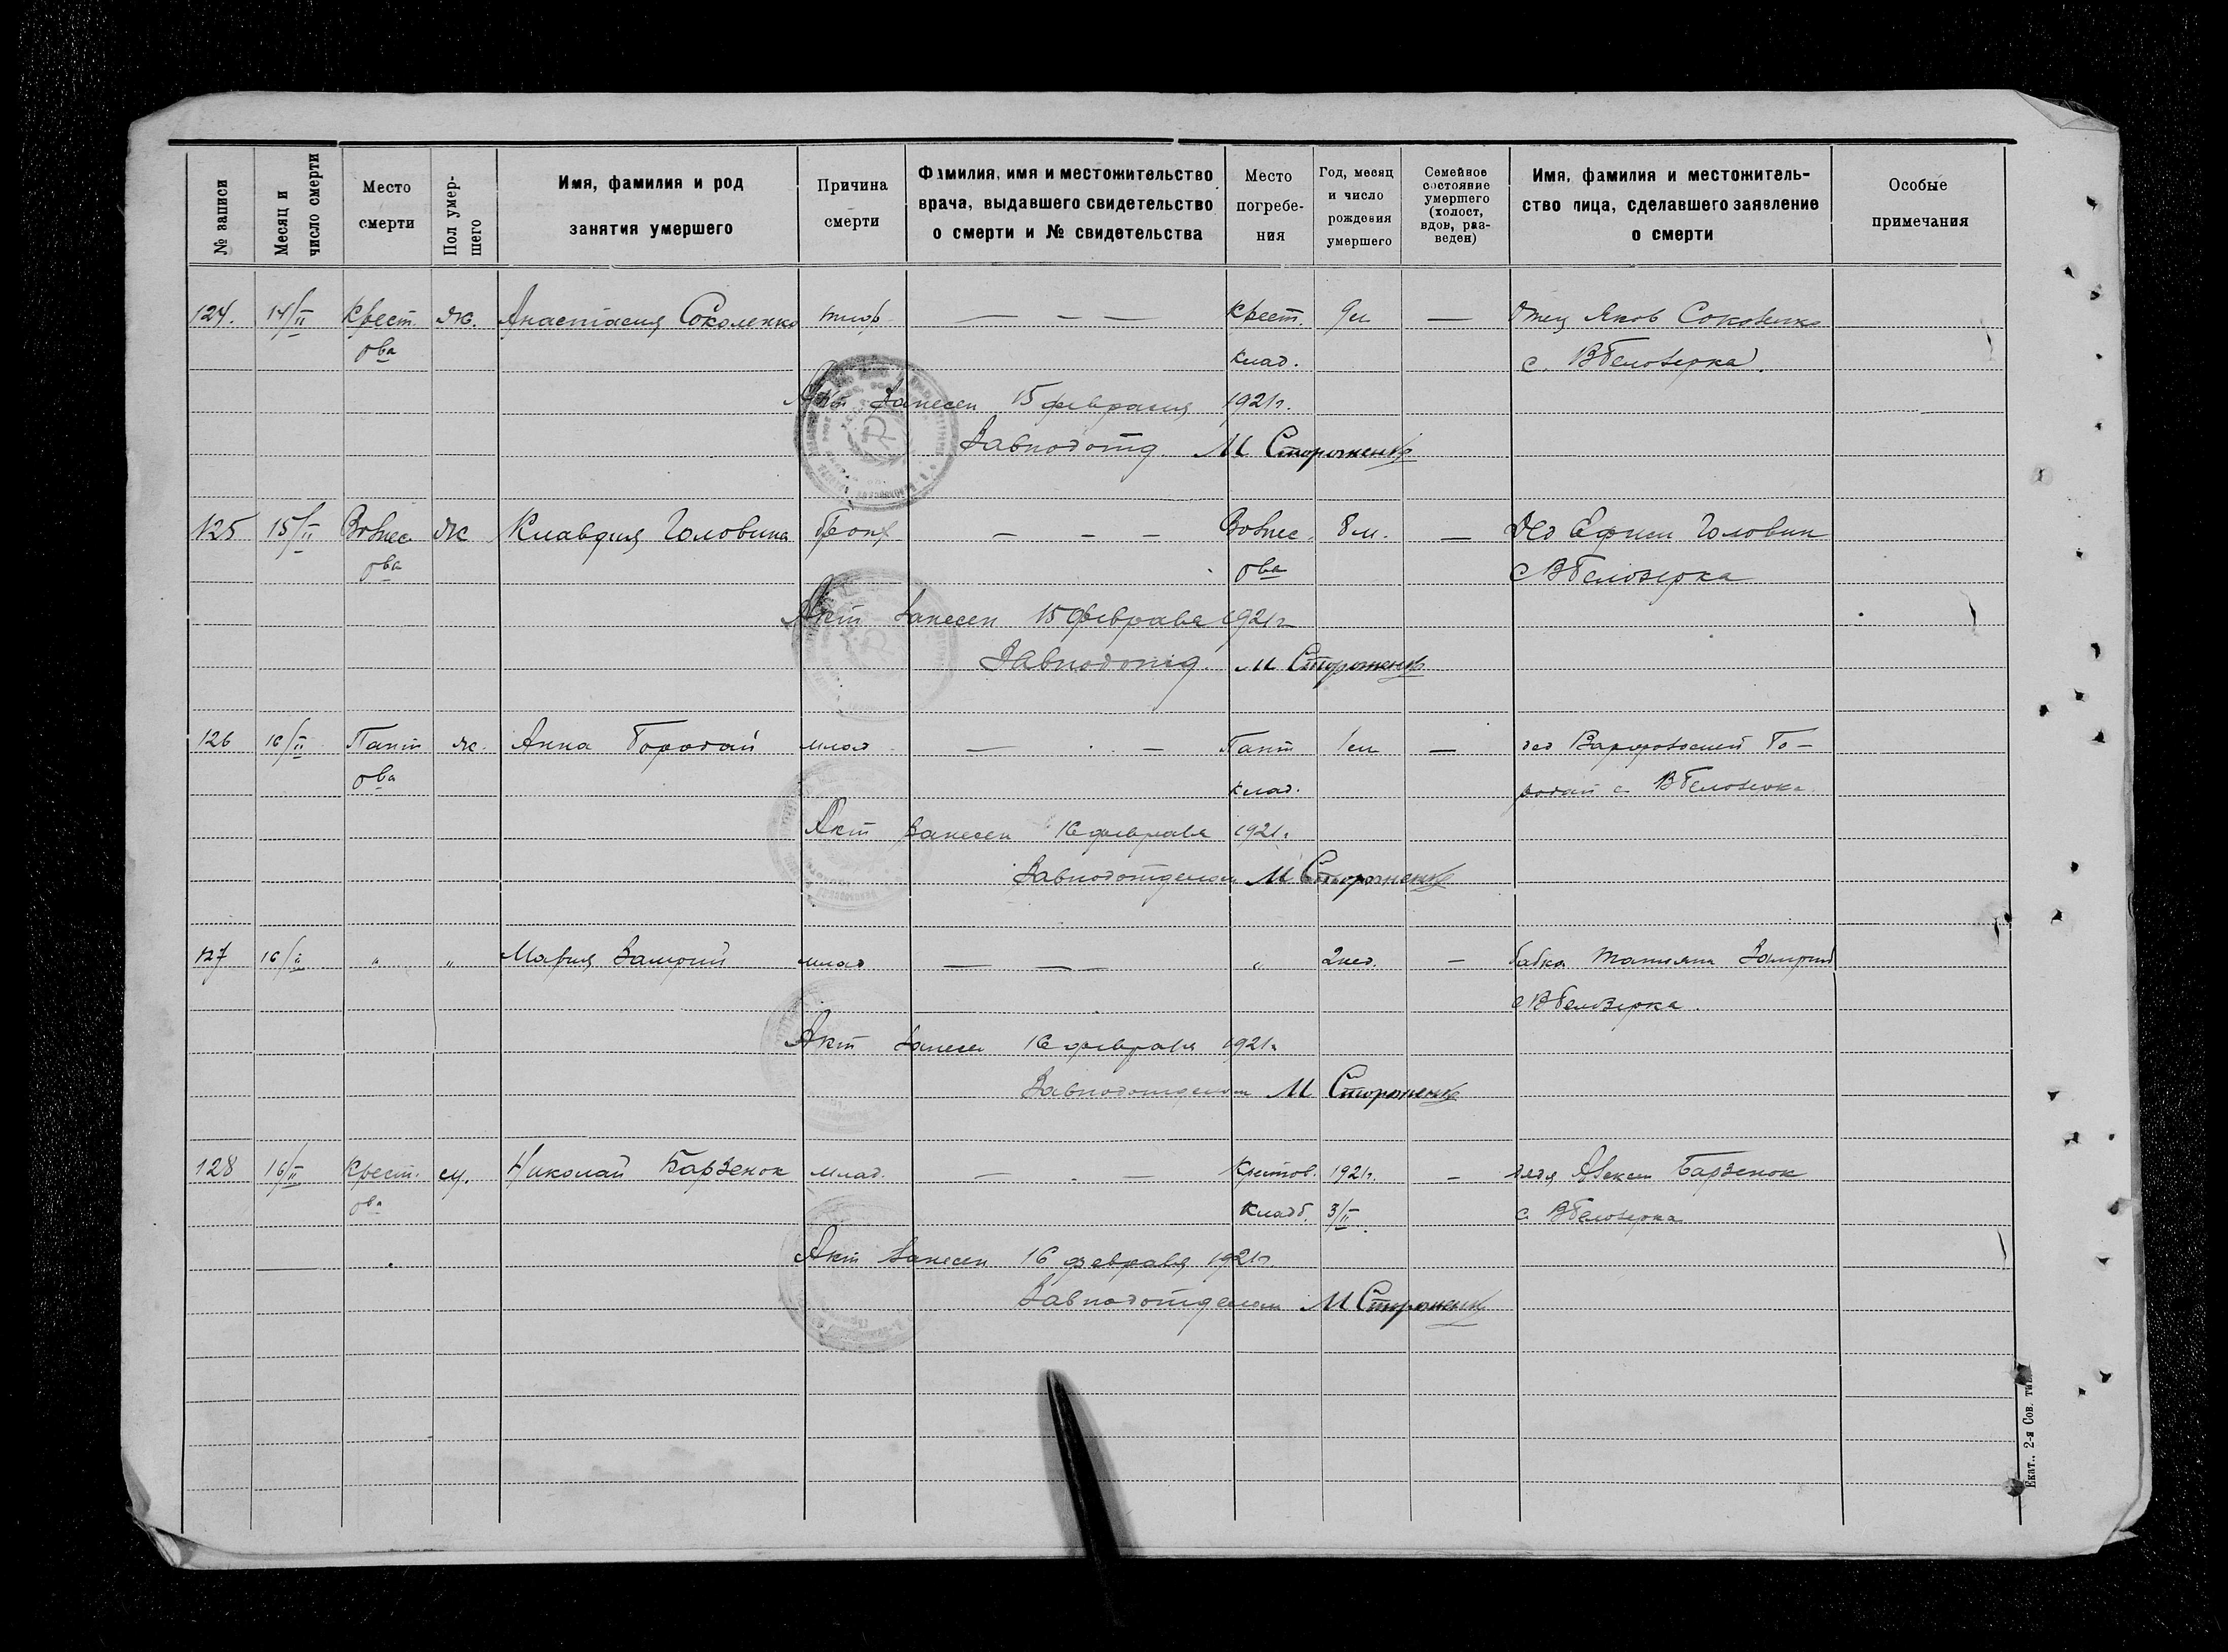 № записи
Месяц и число смерти
Место смерти
Пол умер-шего
Имя, фамилия и род занятия умершего
Причина смерти
Фамилия, имя и местожительство врача, выдавшего свидетельство о смерти и № свидетельства
Место погребе-ния
Год, месяц и число рождения умершего
Семейное состояние умершего (холост, вдов, раз-веден)
Имя, фамилия и местожитель-ство лица, сделавшего заявление о смерти
Особые примечания
124. 14/II Крест. ж. Анастасия Соколенко — — — Крест. 9м — Отец Яков
ова клад. с. ВБелозерка.
Акт Занесен 15 февраля 1921г.
Завподотд. М Стороженко
125 15/II Вознес ж Клавдия Головина — — — Вознес. 8м. — Дед Ефим Головин
ова ова с ВБелозерка
Акт Занесен 15 февраля 1921г
Завподотд. М Стороженко
126 16/II Пант ж. Анна Городай млад — — Пант 1м — дед Го-
ова клад. родай с ВБелозерка
Акт Занесен 16 февраля 1921г
Завподотделом М Стороженко
127 16/II " " Мария млад — — " 2нед. — бабка Татьяна
с ВБелозерка.
Акт Занесен 16 февраля 1921г
Завподотделом М Стороженко
128 16/II Крест. м. Николай Барзенок млад. — — 1921г. — дядя Алексей Барзенок
ова кладб. 3/II с ВБелозерка
Акт Занесен 16 февраля 1921г.
Завподотделом М Стороженко
Екат., 2-я Сов.